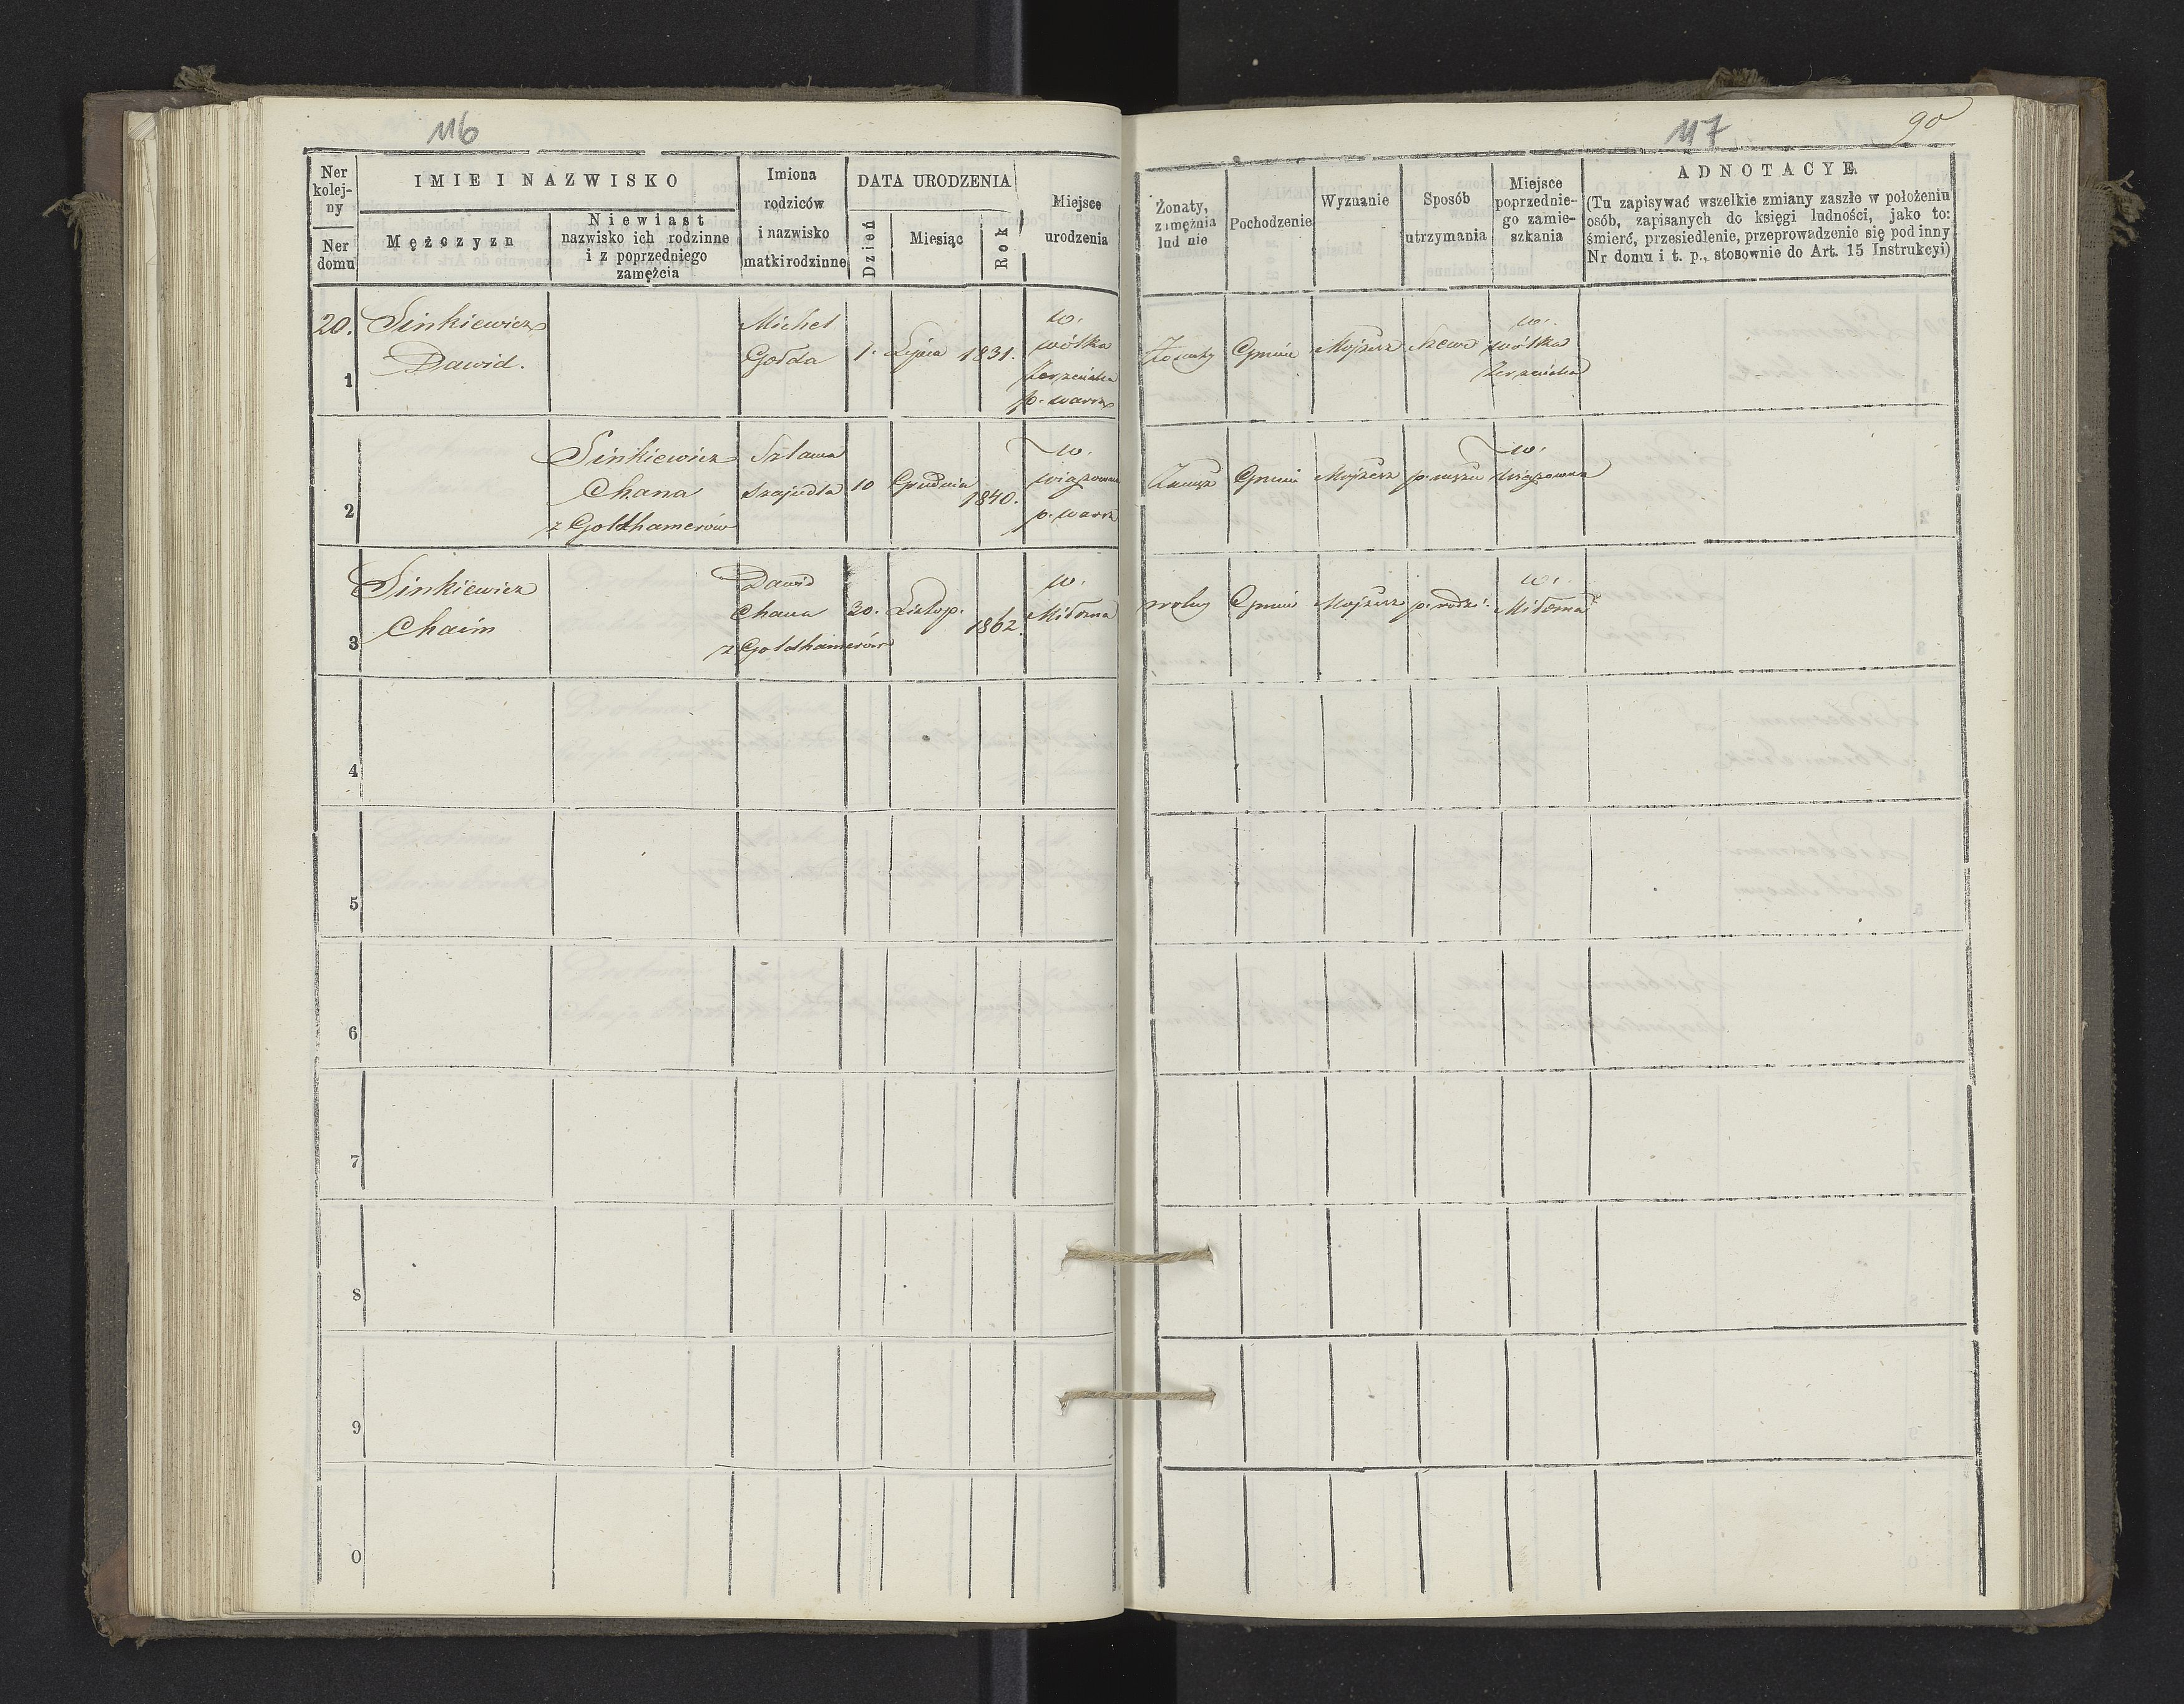 116
117
90
Ner kolej- ny
Ner domu
IMIE I NAZWISKO
Mężczyzn
Niewiast
nazwisko ich rodzinne
i z poprzedniego
zamężcia
Imiona
rodziców
i nazwisko
matki rodzinne
DATA URODZENIA
Dzień
Miesiąc
Rok
Miejsce
urodzenia
Żonaty,
zamężnia
lud nie
Pochodzenie
Wyznanie
Sposób
utrzymania
Miejsce
poprzednie-
go zamie-
szkania
ADNOTACYE
(Tu zapisywać wszelkie zmiany zaszłe w położeniu
osób, zapisanych do księgi ludności, jako to:
śmierć, przesiedlenie, przeprowadzenie się pod inny
Nr domu i t. p., stosownie do Art. 15 Instrukcyi)
20.
1
Sinkiewicz
Dawid.
Michel
Gołda
1. Lipca 1831.
w.
wólka
Zerzeńska
p. warsz
Żonaty Gmin Mojżesz Szewc
w.
wólka
Zerzeńska
2
Sinkiewicz
Chana
z Goldhamerów
Szlama
Szajndla
10 Grudnia 1840.
w.
wiązowna
p. warsz
Zamęż Gmin Mojżesz p. mężu
w.
Wiązowna
3
Sinkiewicz
Chaim
Dawid
Chana
z Goldhamerów
30. Listop. 1862.
w.
Miłosna
wolny Gmin Mojżesz p. rodzi:
w.
Miłosna
4
5
6
7
8
9
0